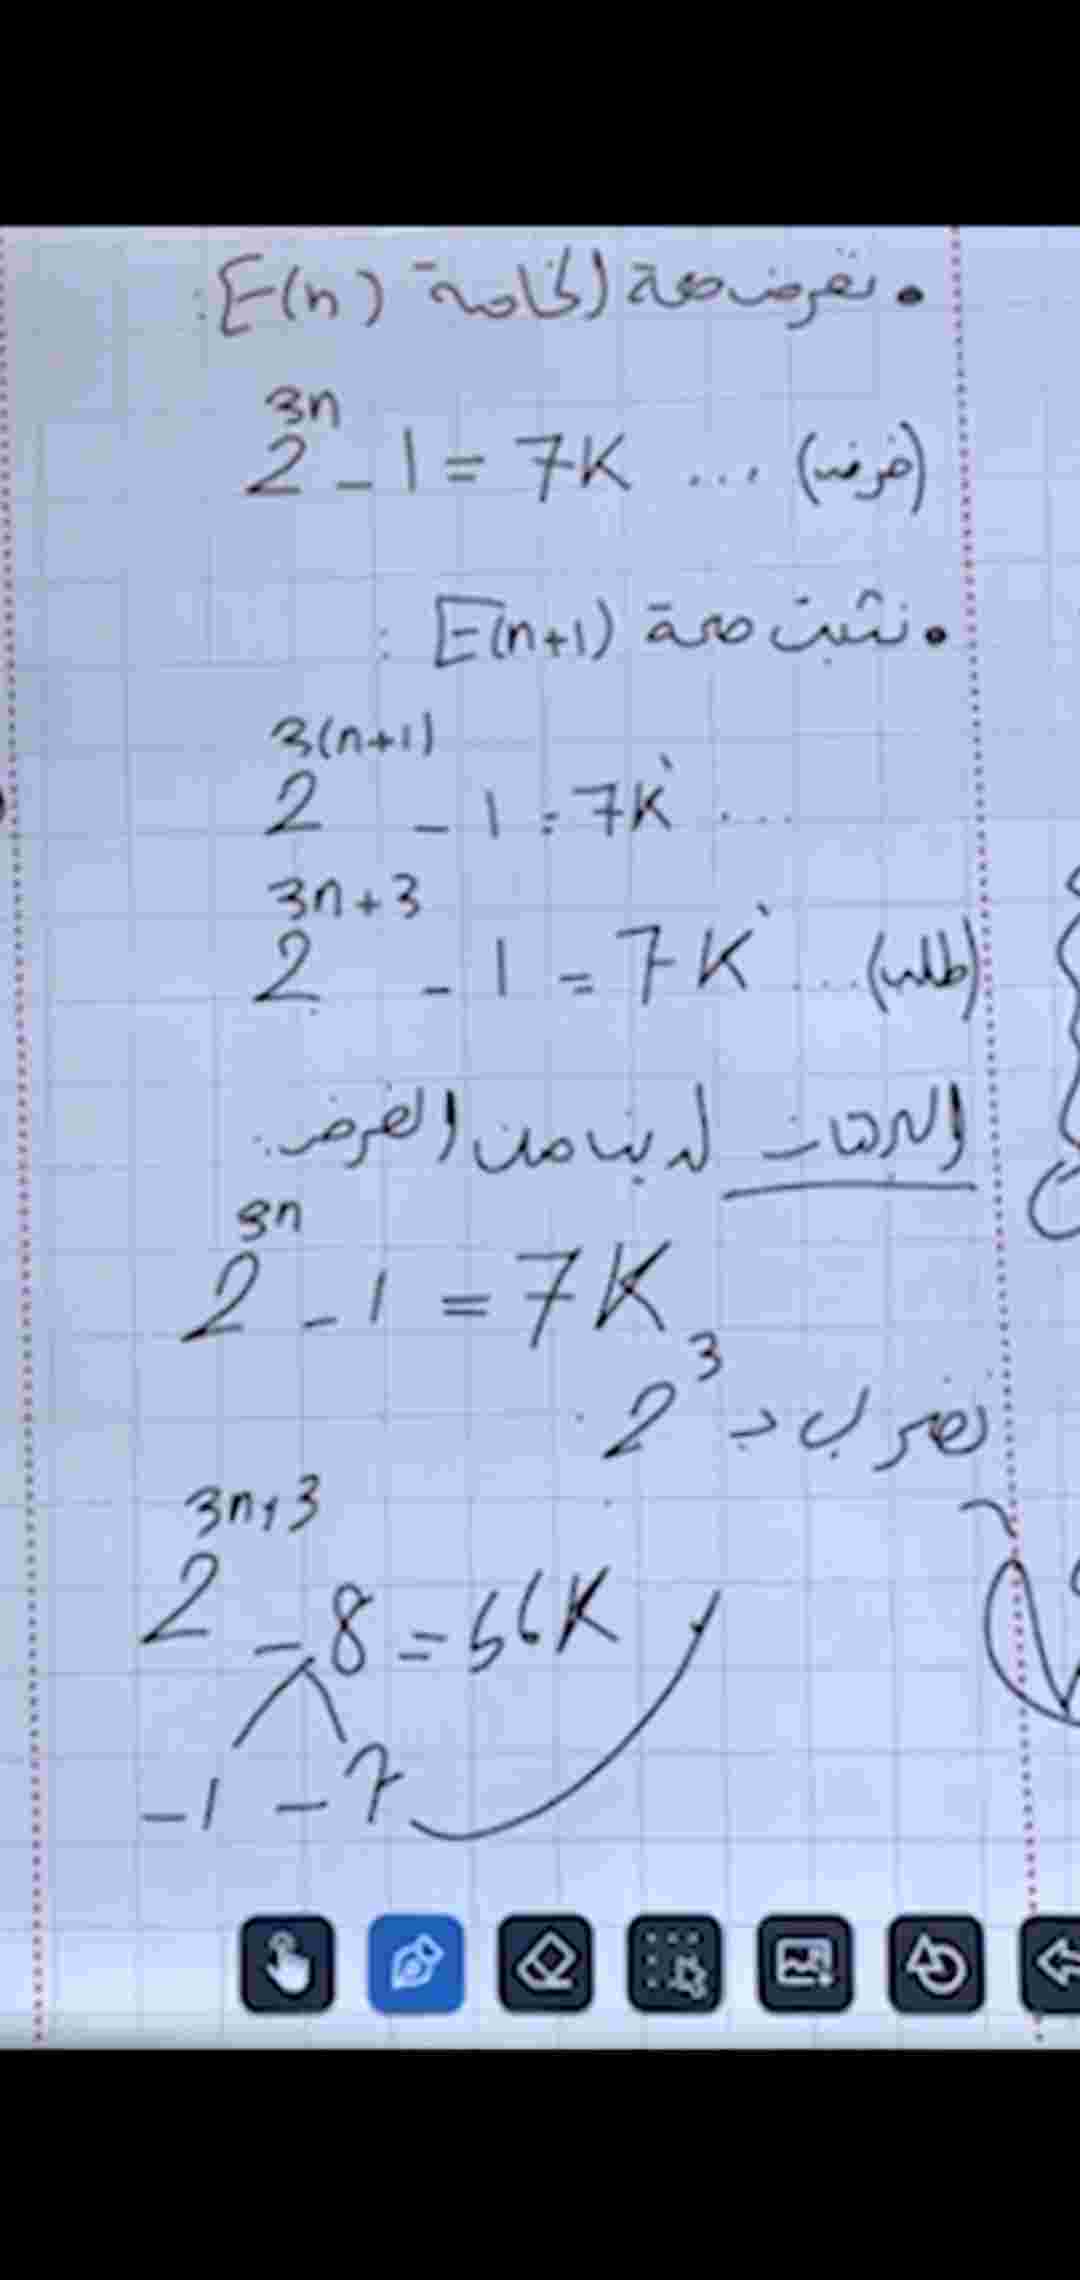 • نفرض صحة الخاصة E(n) :
2^{3n} - 1 = 7K ... (فرض)
• نثبت صحة E(n+1) :
2^{3(n+1)} - 1 = 7K` ...
2^{3n+3} - 1 = 7K` ... (طلب)
الإثبات لدينا من الفرض:
2^{3n} - 1 = 7K
نضرب بـ 2^3
2^{3n+3} - 8 = 56K
-1 -7